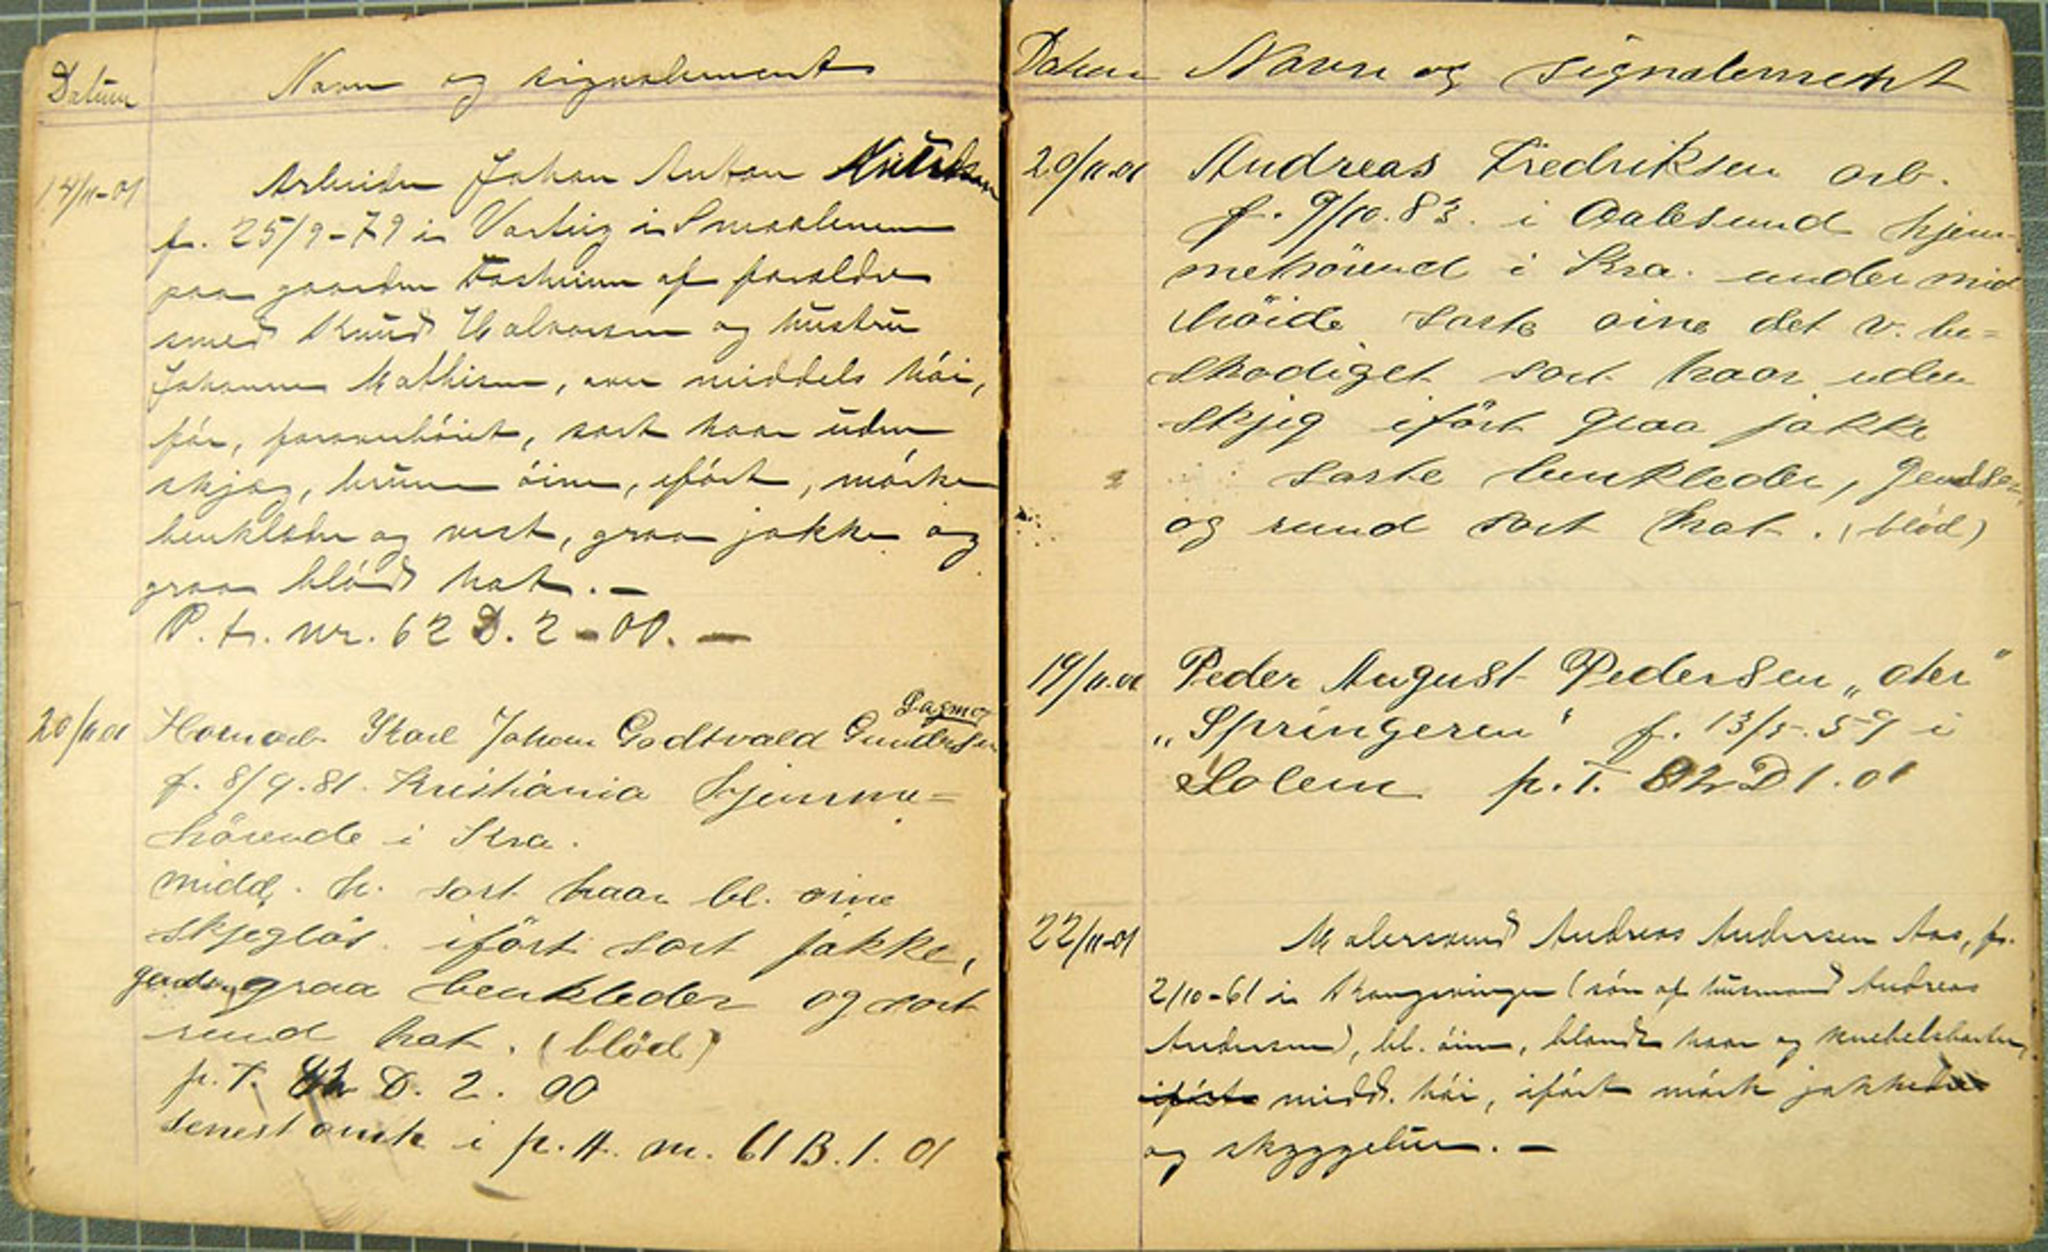 Datum Navn og signalement
14/11-01 Arbeider Johan Anton Knudsen
f. 25/9-79 i Varteig i Smaalenene
paa gaarden af forældre
smed Knud Halvorsen og hustru
Johanne Mathisen, over middels höi,
för, foroverböiet, sort haar uden
skjæg, brune öine, iført, mörke
benklæder og vest, graa jakke og
graa blöd hat. —
P. t. nr. 62 D. 2 - 00. —
20/11.01 Havnearb. Karl Johan Godtvald Gundersen
Dagmog
f. 8/9.81. Kristiania hjemme=
hörende i Kra.
midd. h. sort haar bl. öine
skjeglös. iført sort jakke,
graa benkleder og sort
rund hat. (blöd)
p. T. D. 2. 00
senest omh i p. t. nr. 61 B. 1. 01
Datum Navn og signalement
20/11.01 Andreas Fredriksen arb.
f. 9/10. 83. i Aalesund hjem-
mehörend i Kra. under mid
höide sorte öine det v. be=
skadiget sort haar uden
skjeg iført graa jakke
sorte benkleder, gendser
og rund sort hat. (blöd)
19/11.01 Peder August Pedersen „oter"
„Springeren" f. 13/5. 59 i
Solem p. T. D 1. 01
22/11-01 Malersvend Andreas Andersen Aas, f.
2/10-61 i Kongsvinger (sön af husmand Andreas
Andersen), bl. öine, blondt haar og knebelsbarter,
iført midd. höi, iført mörk jakkedres
og skyggelue. —